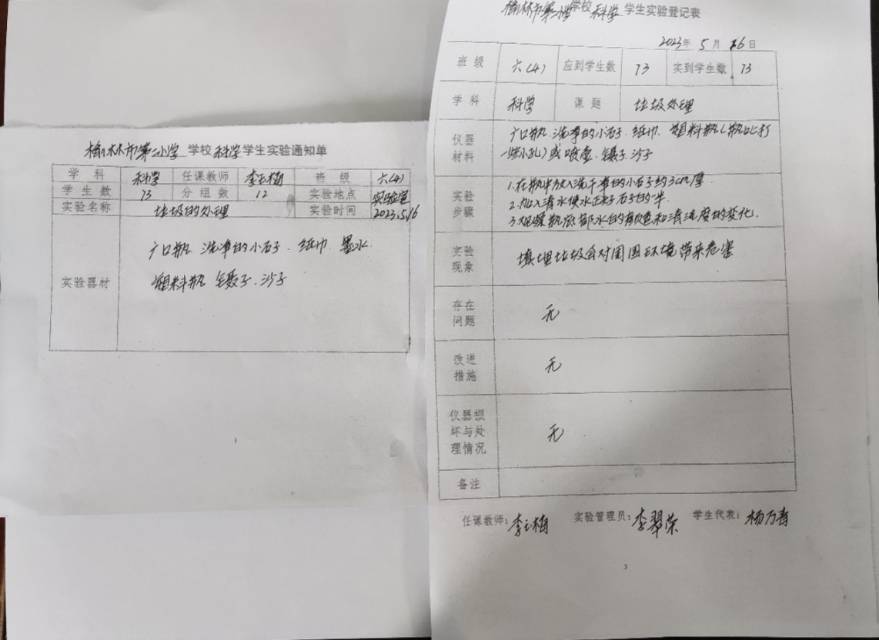 榆林市第二小学 学校 科学 学生实验通知单
学科 科学 任课教师 李玉梅 班级 六(4)
学生数 73 分组数 12 实验地点 实验室
实验名称 垃圾的处理 实验时间 2023.5.16
实验器材 广口瓶 洗净的小石子、纸巾、墨水
塑料瓶 镊子、沙子
榆林市第二小学 学校 科学 学生实验登记表
2023年 5 月 16 日
班级 六(4) 应到学生数 73 实到学生数 73
学科 科学 课题 垃圾处理
仪器材料 广口瓶 洗净的小石子、纸巾、塑料瓶(瓶上打
一些小孔)或喷壶、镊子、沙子
实验步骤 1.在瓶中放入洗干净的小石子约3cm厚
2.加入清水使水正好石子的一半
3.观察瓶底部水的颜色和清洁度的变化.
实验现象 填埋垃圾会对周围环境带来危害
存在问题 无
改进措施 无
仪器损坏与处理情况 无
备注
任课教师: 李玉梅 实验管理员: 李翠荣 学生代表:
3